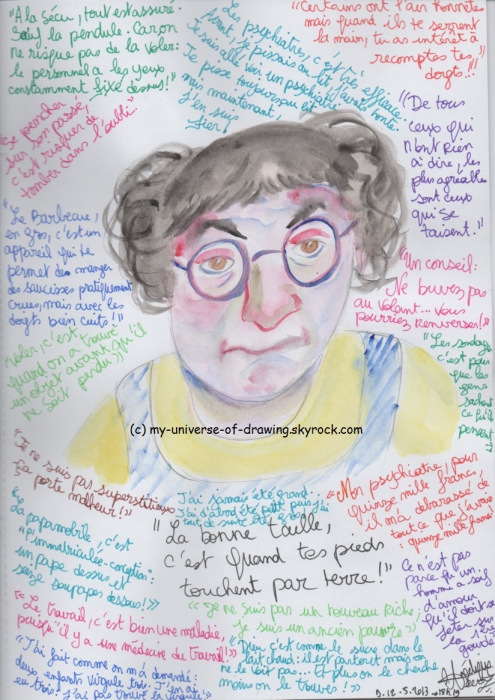 "A la Sécu, tout est assuré.
Sauf la pendule. Car on
ne risque pas de la voler:
le personnel a les yeux
constamment fixé dessus!"
"Les psychiatres, c'est très efficace.
Avant, je pissais au lit, j'avais honte.
Je suis allé voir un psychiatre,
Je pisse toujours au lit
mais maintenant,
j'en suis
fier!
"Certains ont l'air honnête
mais quand ils te serrent
la main, tu as intérêt à
recomptes tes
doigts.."
"Se pencher
sur son passé,
c'est risquer de
tomber dans l'oubli"
"De tous
ceux qui
n'ont rien
à dire, les
plus agréables
sont ceux
qui se
taisent."
"Le Barbeaue,
en gros, c'est un
appareil qui te
permet des manger
des saucisses pratiquement
crues, mais avec les
doigts bien cuits!"
"Un conseil:
Ne buvez pas
au volant... vous
pourriez renverser!"
voler, c'est
quand on a trouvé
un objet avant qu'il
ne soit perdu"
"Les sondages
c'est pour
que les
gens
sachent
ce qu'ils
pensent"
(c) my-universe-of-drawing.skyrock.com
"Je ne suis pas superstitieux
ça porte malheur!"
J'ai jamais été grand.
J'ai d'abord été petit puis j'ai
tout de suite été gros
"Mon psychiatre, pour
quinze mille francs,
il m'a débarassé de
tout ce que j'avais
: quinze mille francs"
"La papamobile, c'est
"l'immatriculée-conception:
un pape dessus et
seize soupapes dessous!"
"La bonne taille,
c'est quand tes pieds
touchent par terre!"
Ce n'est pas
parce qu'un
homme a soif
d'amour
qu'il doit se
jeter sur
la 1ère
gourde
"Le travail, c'est bien une maladie,
puisqu'il y a une médecine du travail!"
"Je ne suis pas un nouveau riche,
je suis un ancien pauvre"
"J'ai fait comme on m'a demandé:
deux enfants virgule trois. J'en ai
eu trois: j'ai pas trouvé la virgule"
"Dieu c'est comme le sucre dans le
lait chaud: il est partout mais on
ne le voit pas... Et plus on le cherche
moins on le trouve"